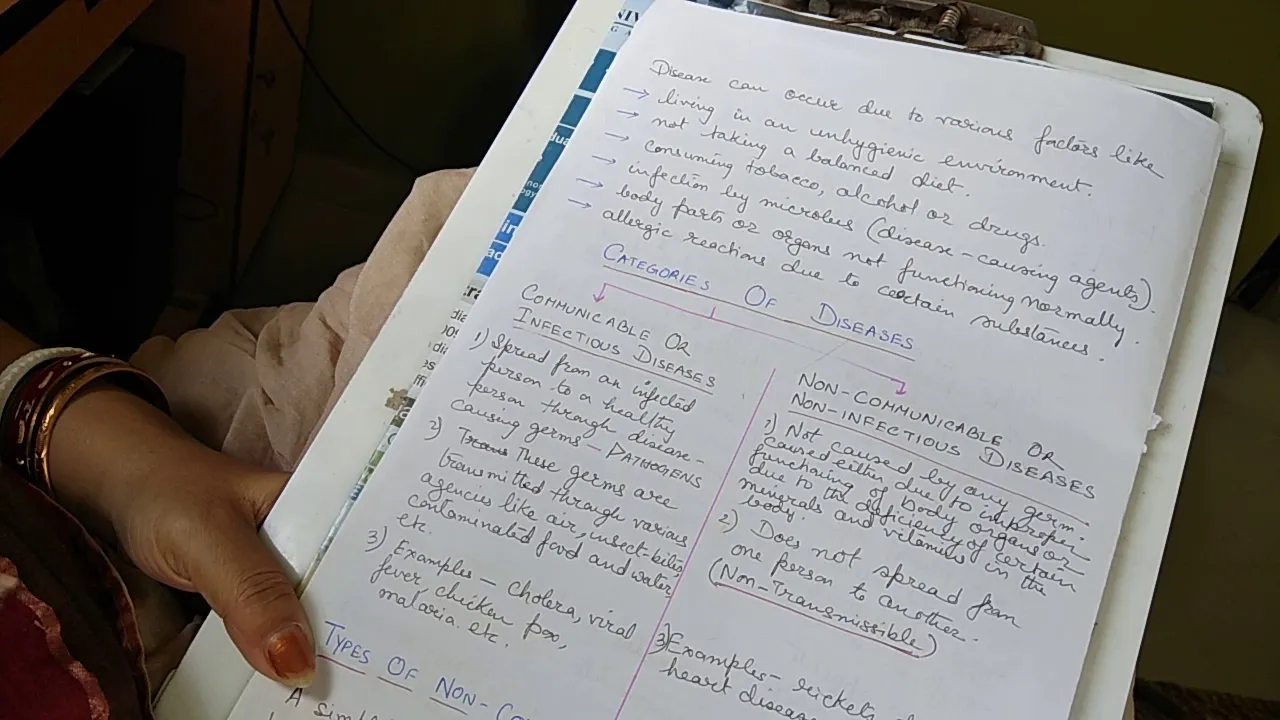 Disease can occur due to various factors like
→ living in an unhygienic environment.
→ not taking a balanced diet.
→ consuming tobacco, alcohol or drugs.
→ infection by microbes (disease-causing agents).
→ body parts or organs not functioning normally.
→ allergic reactions due to certain substances.
CATEGORIES OF DISEASES
COMMUNICABLE OR
INFECTIOUS DISEASES
1) Spread from an infected
person to a healthy
person through disease-
causing germs - PATHOGENS
2) These germs are
transmitted through various
agencies like air, insect-bites,
contaminated food and water
etc.
3) Examples - cholera, viral
fever, chicken pox,
malaria etc.
NON-COMMUNICABLE OR
NON-INFECTIOUS DISEASES
1) Not caused by any germ.
caused either due to improper
functioning of body organs or
due to the deficiency of certain
minerals and vitamins in the
body.
2) Does not spread from
one person to another.
(Non-Transmissible)
3) Examples - rickets,
heart disease
TYPES OF NON-CO
A simp